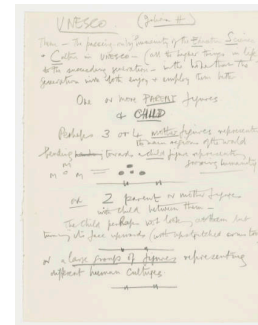 UNESCO (Julian H)
Theme — the passing on by humanity of the
Culture in UNESCO — (all the higher things in life
to the succeeding generation — with the hope that the
generation will both enjoy & employ them better
One or more PARENT figures
& CHILD
Perhaps 3 or 4 mother figures representing
the main regions of the world
bending towards a child figure representing
growing humanity
m
m o m
m
OR 2 parent or mother figures
with child between them —
The child perhaps not looking at them but
turning its face upwards (with outstretched arms too
or a large group of figures representing
different human cultures